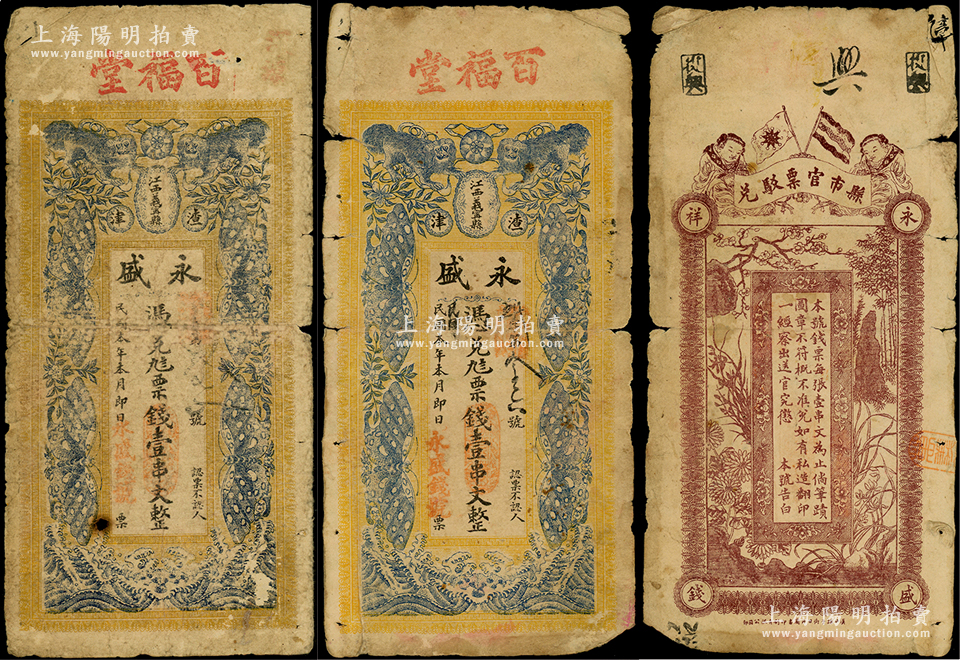 上海陽明拍賣
www.yangmingauction.com
百福堂
江西義寧縣
渣津
永盛
號
憑票兌九票錢壹串文整
認票不認人
民國叁年本月即日
永盛錢號
票
百福堂
江西義寧縣
渣津
永盛
號
憑票兌九票錢壹串文整
認票不認人
民國叁年本月即日
永盛錢號
票
上海陽明拍賣
www.yangmingauction.com
興
縣市官票駁兌
永祥
本號錢票每張壹串文為止倘筆蹟
圖章不符概不准兌如有私造翻印
一經察出送官究懲
本號告白
盛錢
上海陽明拍賣
www.yangmingauction.com